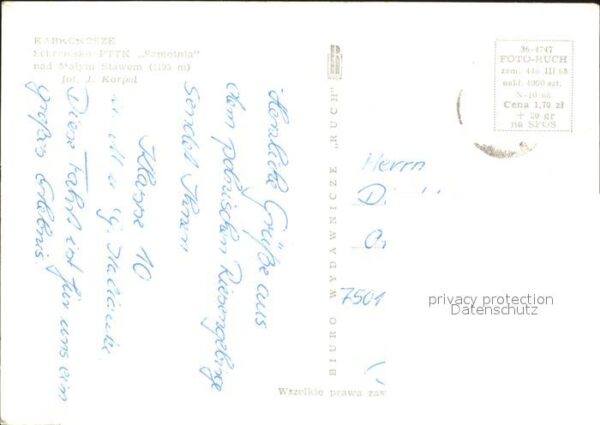 KARKONOSZE
Schronisko PTTK „Samotnia"
nad Małym Stawem (1195 m)
fot. J. Korpal
Herzliche Grüße aus
dem polnischen Riesengebirge
sendet Ihnen
Klasse 10
Diese Fahrt ist für uns ein
großes Erlebnis.
BIURO WYDAWNICZE „RUCH"
36-4747
FOTO-RUCH
zam. 446 III 68
nakł. 4000 szt.
Cena 1,70 zł
+ 30 gr
na SFOS
Herrn
D
O
7501
privacy protection
Datenschutz
Wszelkie prawa zas